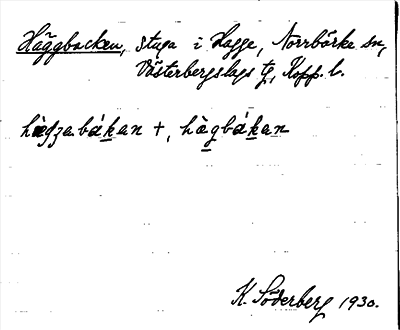 Häggbacken, stuga i Hagge, Norrbärke sn,
Västerbergslags tg, Kopp. l.
hægzabákan +, hæ̀gbákan
K. Söderberg 1930.